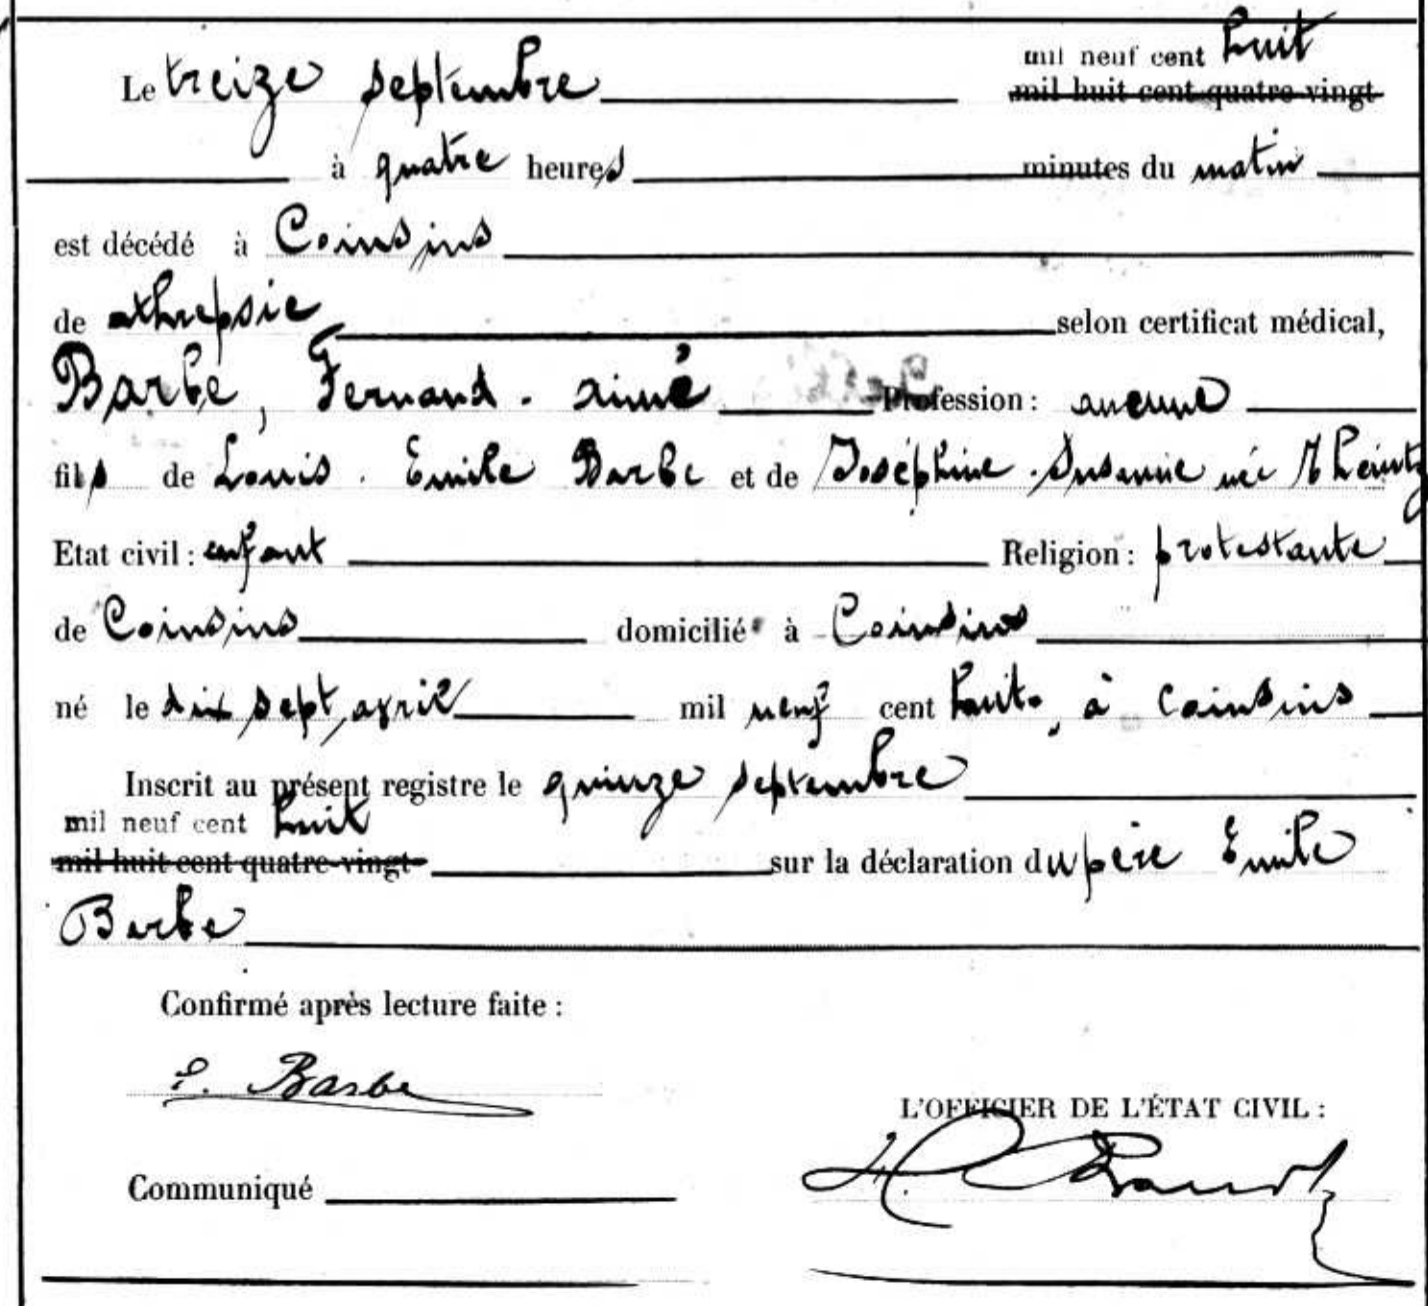 Le treize septembre mil neuf cent huit
mil huit cent quatre-vingt
à quatre heures minutes du matin
est décédé à Coinsins
de athrepsie selon certificat médical,
Barbe, Fernand-Aimé Profession : aucune
fils de Louis-Emile Barbe et de Joséphine-Susanne née
Etat civil : enfant Religion : protestante
de Coinsins domicilié à Coinsins
né le dix sept avril mil neuf cent huit, à Coinsins
Inscrit au présent registre le quinze septembre
mil neuf cent huit
mil huit cent quatre-vingt- sur la déclaration du père Emile
Barbe
Confirmé après lecture faite :
E. Barbe
L'OFFICIER DE L'ÉTAT CIVIL :
Communiqué